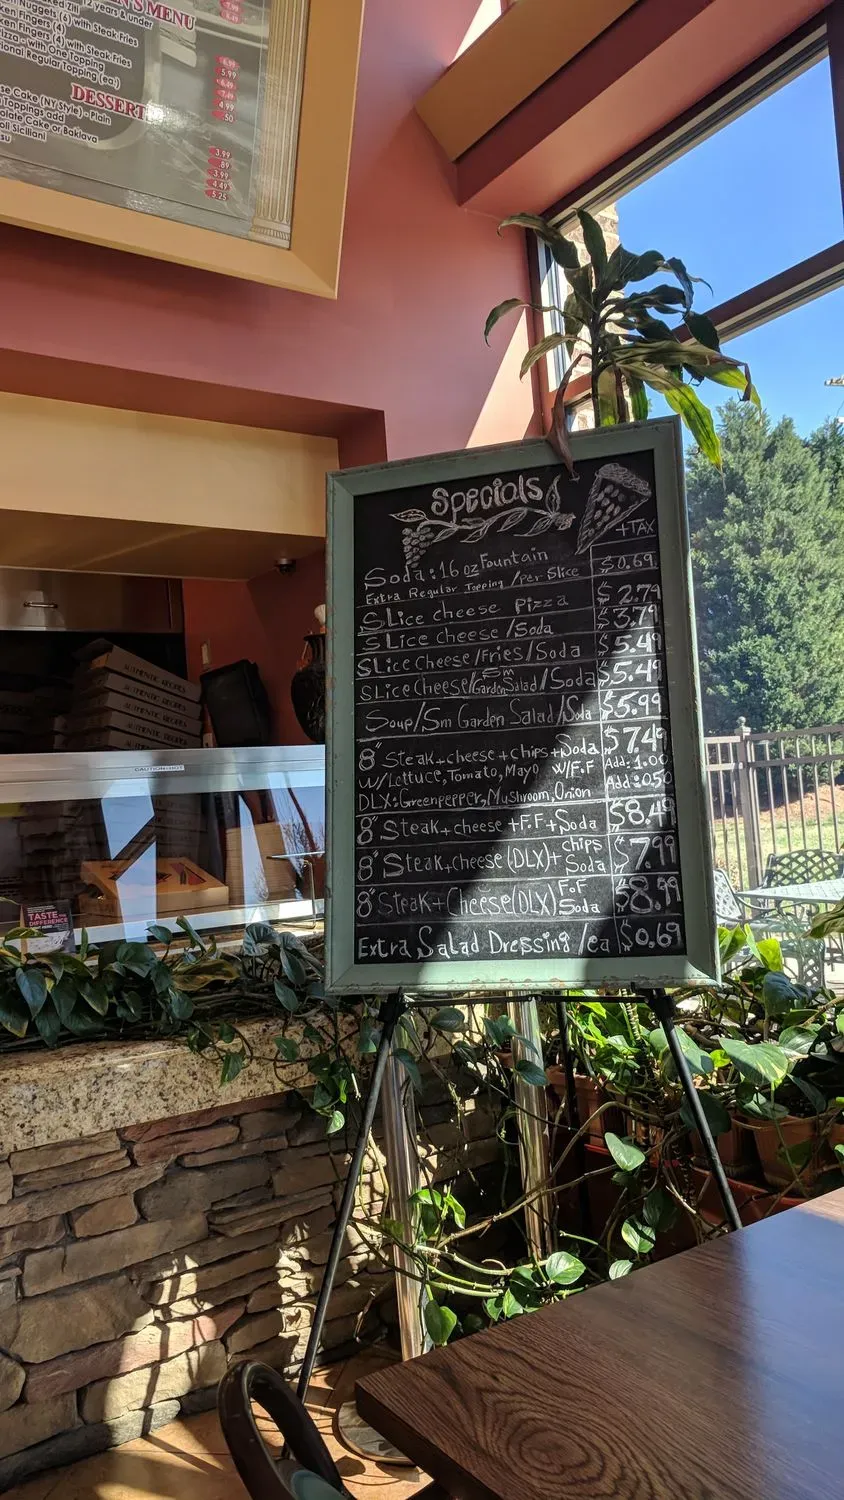 N'S MENU
2 years & under
Nuggets (6) with Steak Fries
Fingers (4) with Steak Fries
with One Topping
Regular Topping (ea)
6.99
5.99
6.49
7.49
4.99
.50
DESSERT
Cake (NY Style) - Plain
Toppings add
Cake or Baklava
Siciliani
3.99
.89
3.99
4.49
5.25
Specials
+TAX
Soda: 16 oz Fountain
Extra Regular Topping / per Slice $0.69
SLice cheese Pizza $2.79
SLice cheese/Soda $3.79
SLice Cheese/Fries/Soda $5.49
SLice Cheese/Sm Garden Salad/Soda $5.49
Soup/Sm Garden Salad/Soda $5.99
8" Steak+cheese+chips+Soda $7.49
W/Lettuce, Tomato, Mayo W/F.F Add: 1.00
DLX: Greenpepper, Mushroom, Onion Add: 0.50
8" Steak+cheese+F.F+Soda $8.49
8" Steak+cheese (DLX)+ chips Soda $7.99
8" Steak+Cheese (DLX) F.F Soda $8.99
Extra Salad Dressing /ea $0.69
AUTHENTIC RECIPES
AUTHENTIC RECIPES
AUTHENTIC RECIPES
AUTHENTIC RECIPES
CAUTION-HOT
TASTE THE
DIFFERENCE